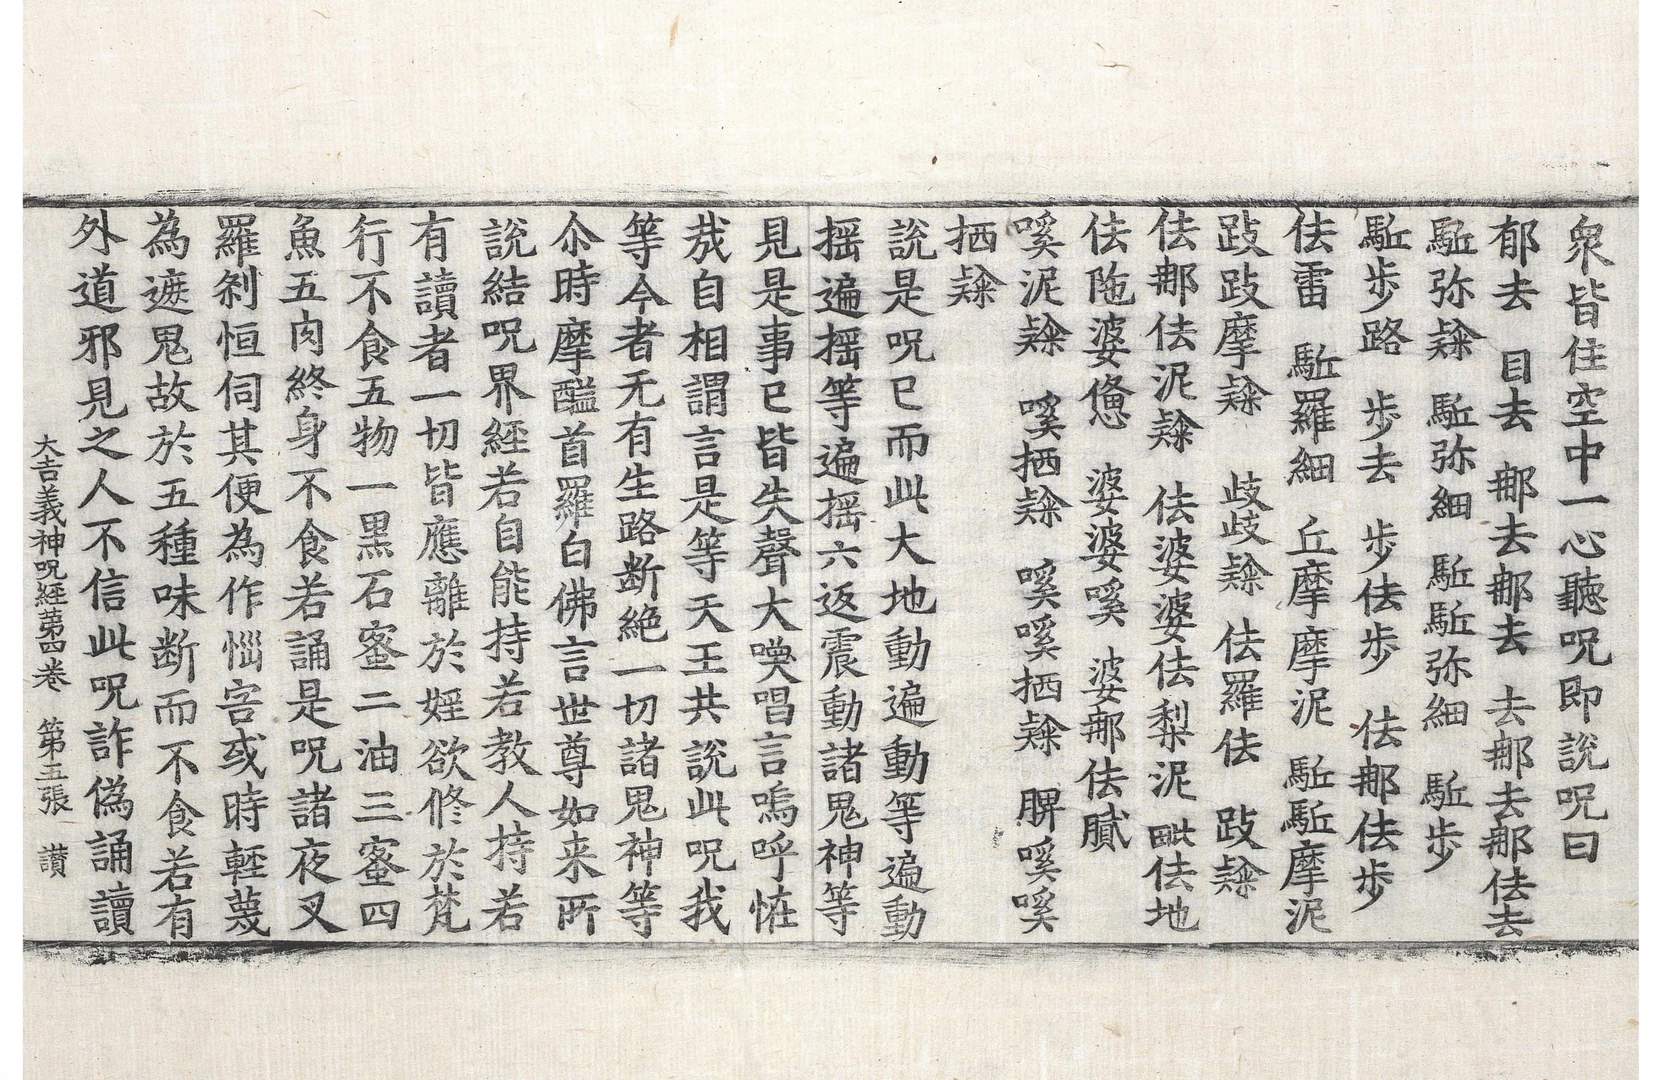 衆皆住空中一心聽呪即說呪曰
郁去 目去 𨚗去𨚗去 去𨚗去𨚗佉去
駈弥𨇨 駈弥細 駈駈弥細 駈步
駈步路 步去 步佉步 佉𨚗佉步
佉雷 駈羅細 丘摩摩泥 駈駈摩泥
跂跂摩 歧歧 佉羅佉 跂
佉𨚗佉泥 佉婆婆佉梨泥毗佉地
佉陁婆 婆婆㗨 婆𨚗佉膩
㗨泥 㗨拪 㗨㗨拪 脾㗨㗨
拪
說是呪已而此大地動遍動等遍動
搖遍搖等遍遍搖六返震動諸鬼神等
見是事已皆失聲大㗇唱言嗚呼恠
㦲自相謂言是等天王共說此呪我
等今者无有生路断絕一切諸鬼神等
尒時摩醯首羅白佛言世尊如来所
說結呪界經若自能持若教人持若
有讀者一切皆應離於婬欲修於梵
行不食五物一黑石蜜二油三蜜四
魚五肉終身不食若誦是呪諸夜叉
羅剎恒伺其便為作惱害或時輕蔑
為遮鬼故於五種味断而不食若有
外道邪見之人不信此呪詐偽誦讀
大吉義神呪經苐四卷 第五張 讃